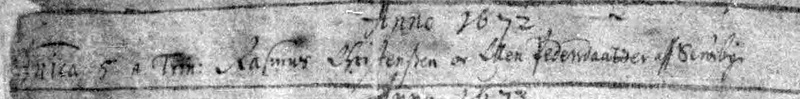 Anno 1672
Dnica 5 a Trin: Rasmus Christensen oc Ellen Pedersdaatter aff
Anno 1673